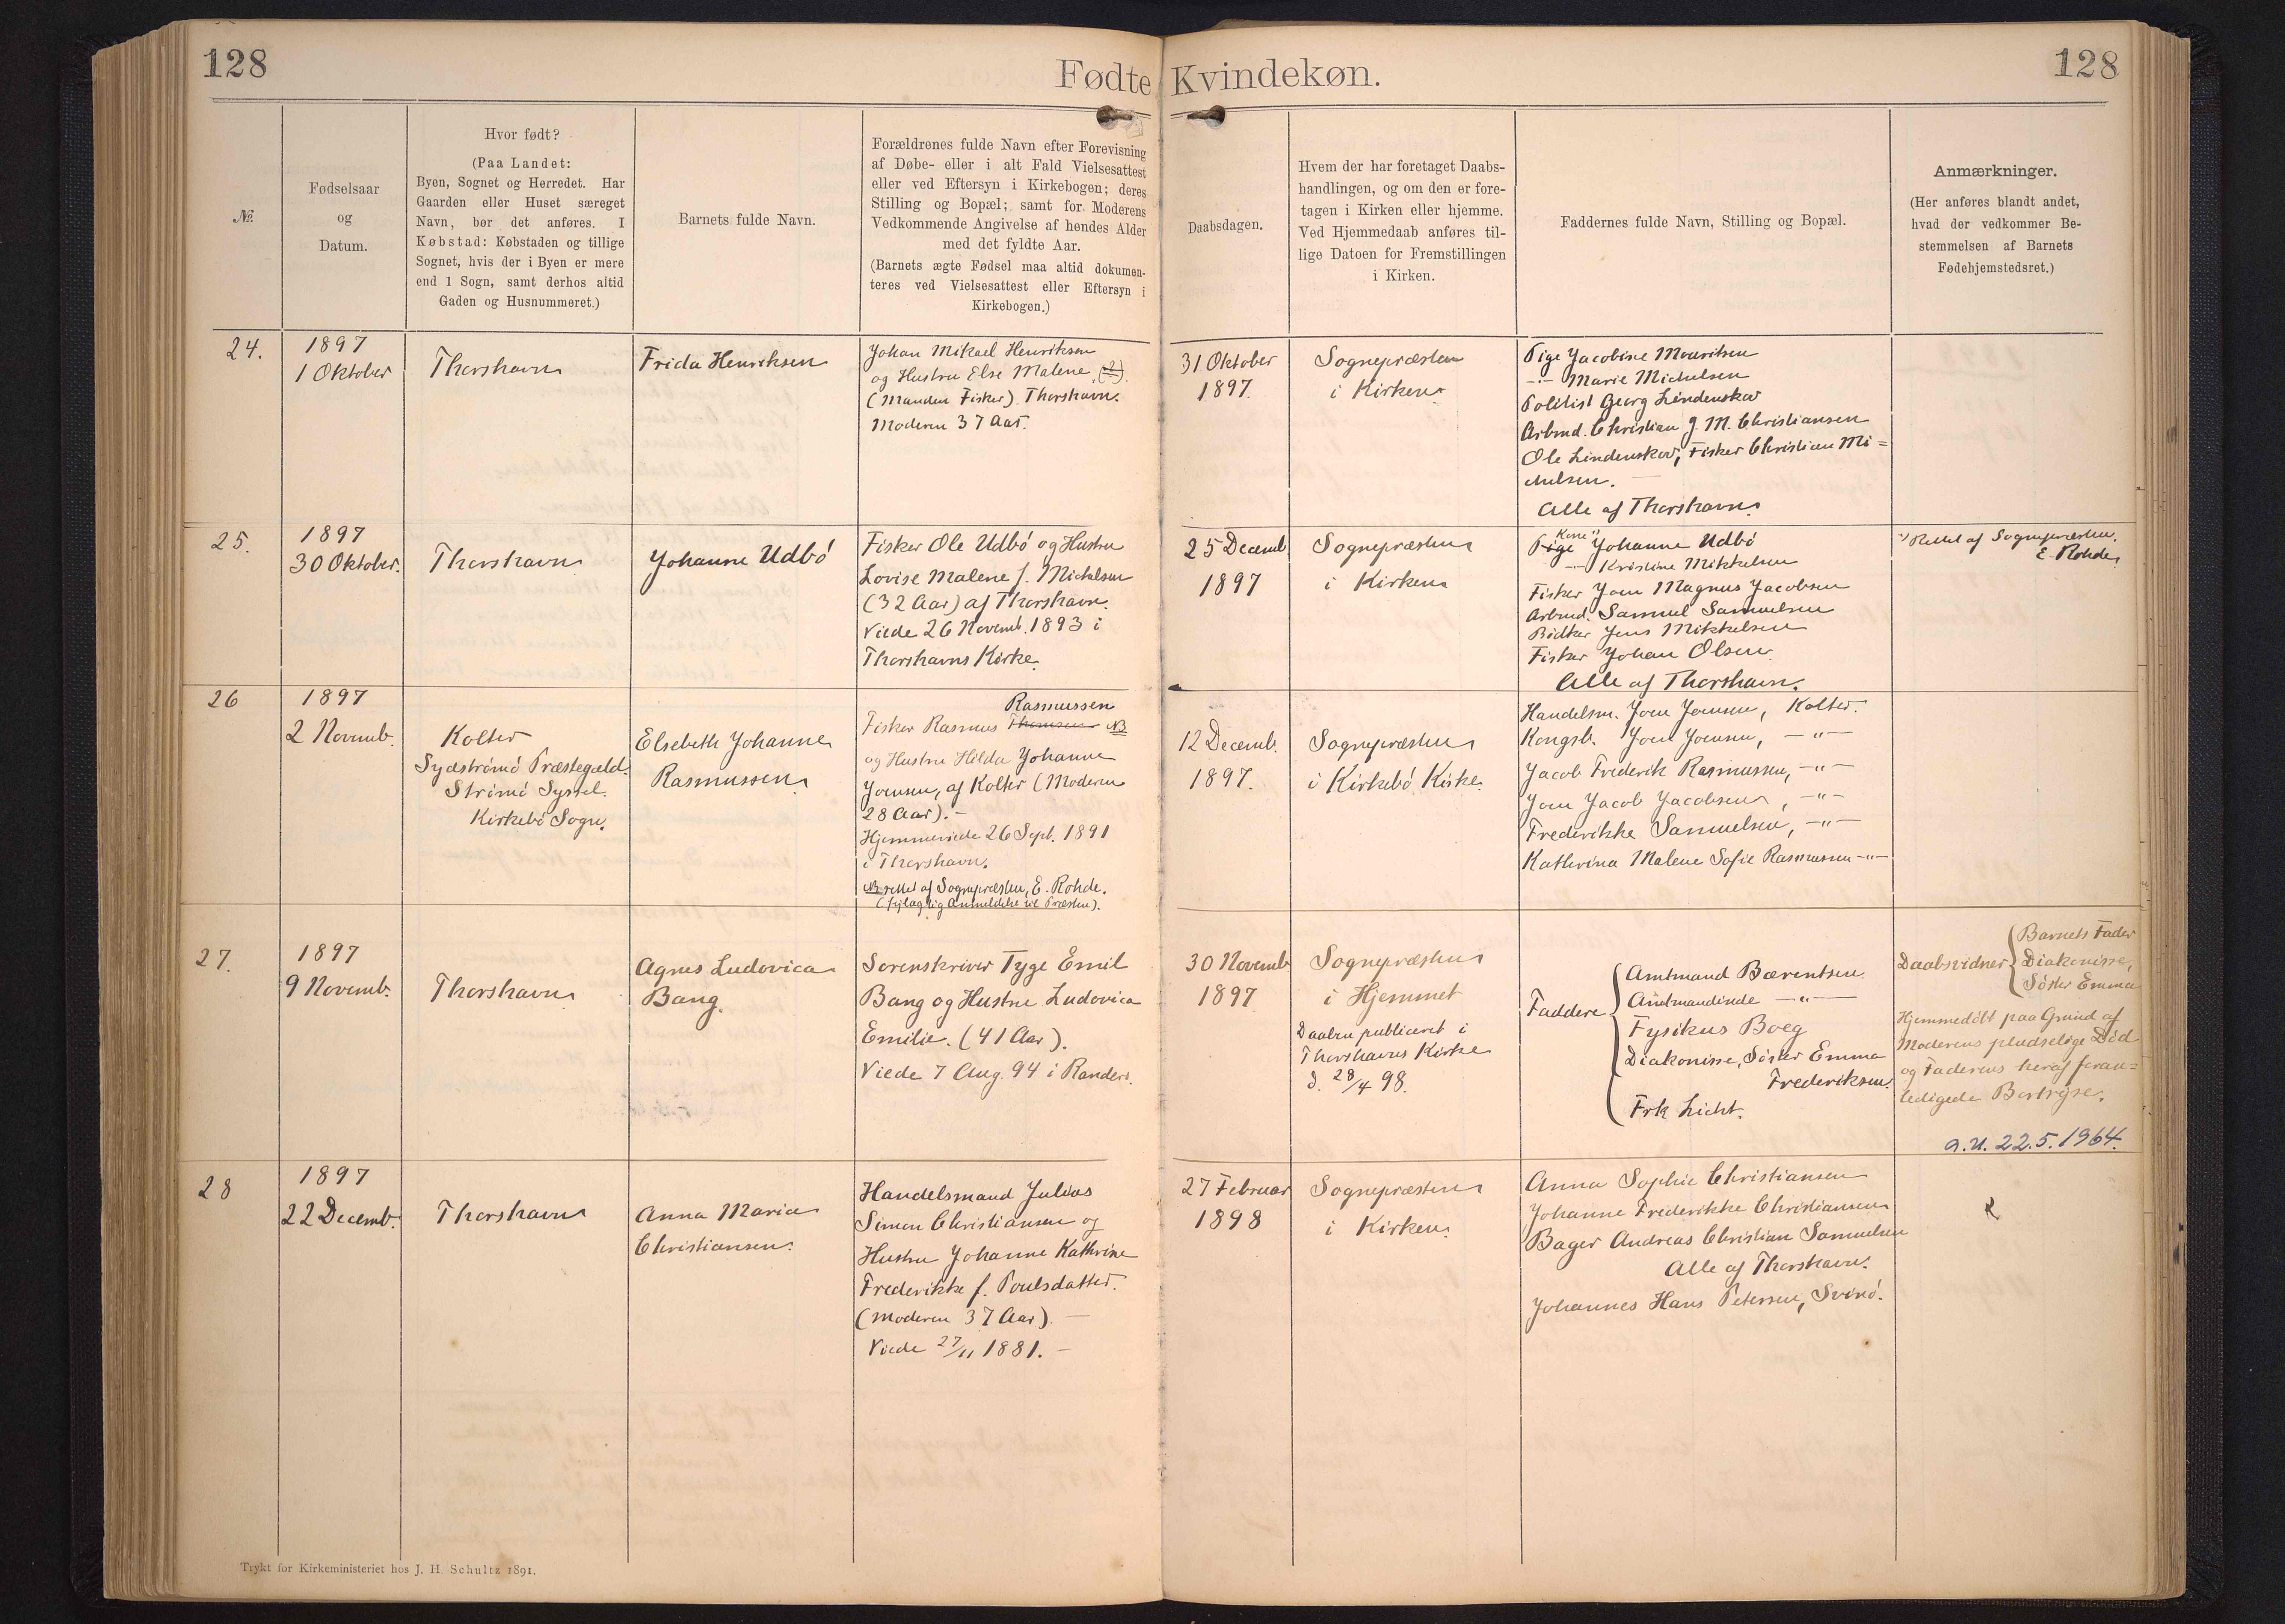 128
Fødte Kvindekøn.
128
№.
Fødselsaar
og
Datum.
Hvor født?
(Paa Landet:
Byen, Sognet og Herredet. Har
Gaarden eller Huset særeget
Navn, bør det anføres. I
Købstad: Købstaden og tillige
Sognet, hvis der i Byen er mere
end 1 Sogn, samt derhos altid
Gaden og Husnummeret.)
Barnets fulde Navn.
Forældrenes fulde Navn efter Forevisning
af Døbe- eller i alt Fald Vielsesattest
eller ved Eftersyn i Kirkebogen; deres
Stilling og Bopæl; samt for Moderens
Vedkommende Angivelse af hendes Alder
med det fyldte Aar.
(Barnets ægte Fødsel maa altid dokumen-
teres ved Vielsesattest eller Eftersyn i
Kirkebogen.)
Daabsdagen.
Hvem der har foretaget Daabs-
handlingen, og om den er fore-
tagen i Kirken eller hjemme.
Ved Hjemmedaab anføres til-
lige Datoen for Fremstillingen
i Kirken.
Faddernes fulde Navn, Stilling og Bopæl.
Anmærkninger.
(Her anføres blandt andet,
hvad der vedkommer Be-
stemmelsen af Barnets
Fødehjemstedsret.)
24.
1897
1 Oktober
Thorshavn
Frida Henriksen
Johan Mikael Henriksen
og Hustru Else Malene
(Manden Fisker) Thorshavn.
Moderen 37 Aar.
31 Oktober
1897.
Sognepræsten
i Kirken
Pige Jacobine Mouritsen
-"- Marie Michelsen
Politist Georg Lindenskov
Arbmd. Christian J. M. Christiansen
Ole Lindenskov, Fisker Christian Mi=
chelsen.
Alle af Thorshavn
25.
1897
30 Oktober.
Thorshavn
Johanne Udbö
Fisker Ole Udbö og Hustru
Lovise Malene f. Michelsen
(32 Aar) af Thorshavn.
Viede 26 Novemb. 1893 i
Thorshavns Kirke.
25 Decemb
1897
Sognepræsten
i Kirken
Kone
Pige Johanne Udbö
-"- Kristine Mikkelsen
Fisker Joen Magnus Jacobsen
Arbmd. Samuel Samuelsen
Bödker Jens Mikkelsen
Fisker Johan Olsen.
Alle af Thorshavn.
Rettet af Sognepræsten,
E. Rohde
26
1897
2 Novemb.
Kolter
Sydströmö Præstegæld.
Strömö Syssel.
Kirkebö Sogn.
Elsebeth Johanne
Rasmussen
Rasmussen
Fisker Rasmus Thomsen NB
og Hustru Hilda Johanne
Joensen, af Kolter (Moderen
28 Aar). -
Hjemmeviede 26 Sept. 1891
i Thorshavn.
NB rettet af Sognepræsten, E. Rohde.
(fejlagtig Anmeldelse til Præsten).
12 Decemb.
1897.
Sognepræsten
i Kirkebö Kirke.
Handelsm. Joen Joensen, Kolter.
Kongsb. Joen Joensen, -"-
Jacob Frederik Rasmussen, -"-
Joen Jacob Jacobsen, -"-
Frederikke Samuelsen, -"-
Kathrina Malene Sofie Rasmussen -"-
27.
1897
9 Novemb.
Thorshavn
Agnes Ludovica
Bang.
Sorenskriver Tyge Emil
Bang og Hustru Ludovica
Emilie. (41 Aar).
Viede 7 Aug. 94 i Randers.
30 Novemb
1897
Sognepræsten
i Hjemmet
Daaben publiceret i
Thorshavns Kirke
d. 28/4 98.
Faddere
Amtmand Bærentsen
Amtmandinde -"-
Fysikus Boeg
Diakonisse, Söster Emma
Frederiksen.
Frk Licht.
Daabsvidner
Barnets Fader
Diakonisse,
Söster Emma
Hjemmedöbt paa Grund af
Moderens pludselige Död
og Faderens heraf foran=
ledigede Bortrejse.
a.u. 22.5.1964.
28
1897
22 Decemb.
Thorshavn
Anna Maria
Christiansen.
Handelsmand Julius
Simon Christiansen og
Hustru Johanne Kathrine
Frederikke f. Poulsdatter.
(Moderen 37 Aar). -
Viede 27/11 1881. -
27 Februar
1898
Sognepræsten
i Kirken.
Anna Sophie Christiansen
Johanne Frederikke Christiansen
Bager Andreas Christian Samuelsen
Alle af Thorshavn.
Johannes Hans Petersen, Svinö.
Trykt for Kirkeministeriet hos J. H. Schultz 1891.